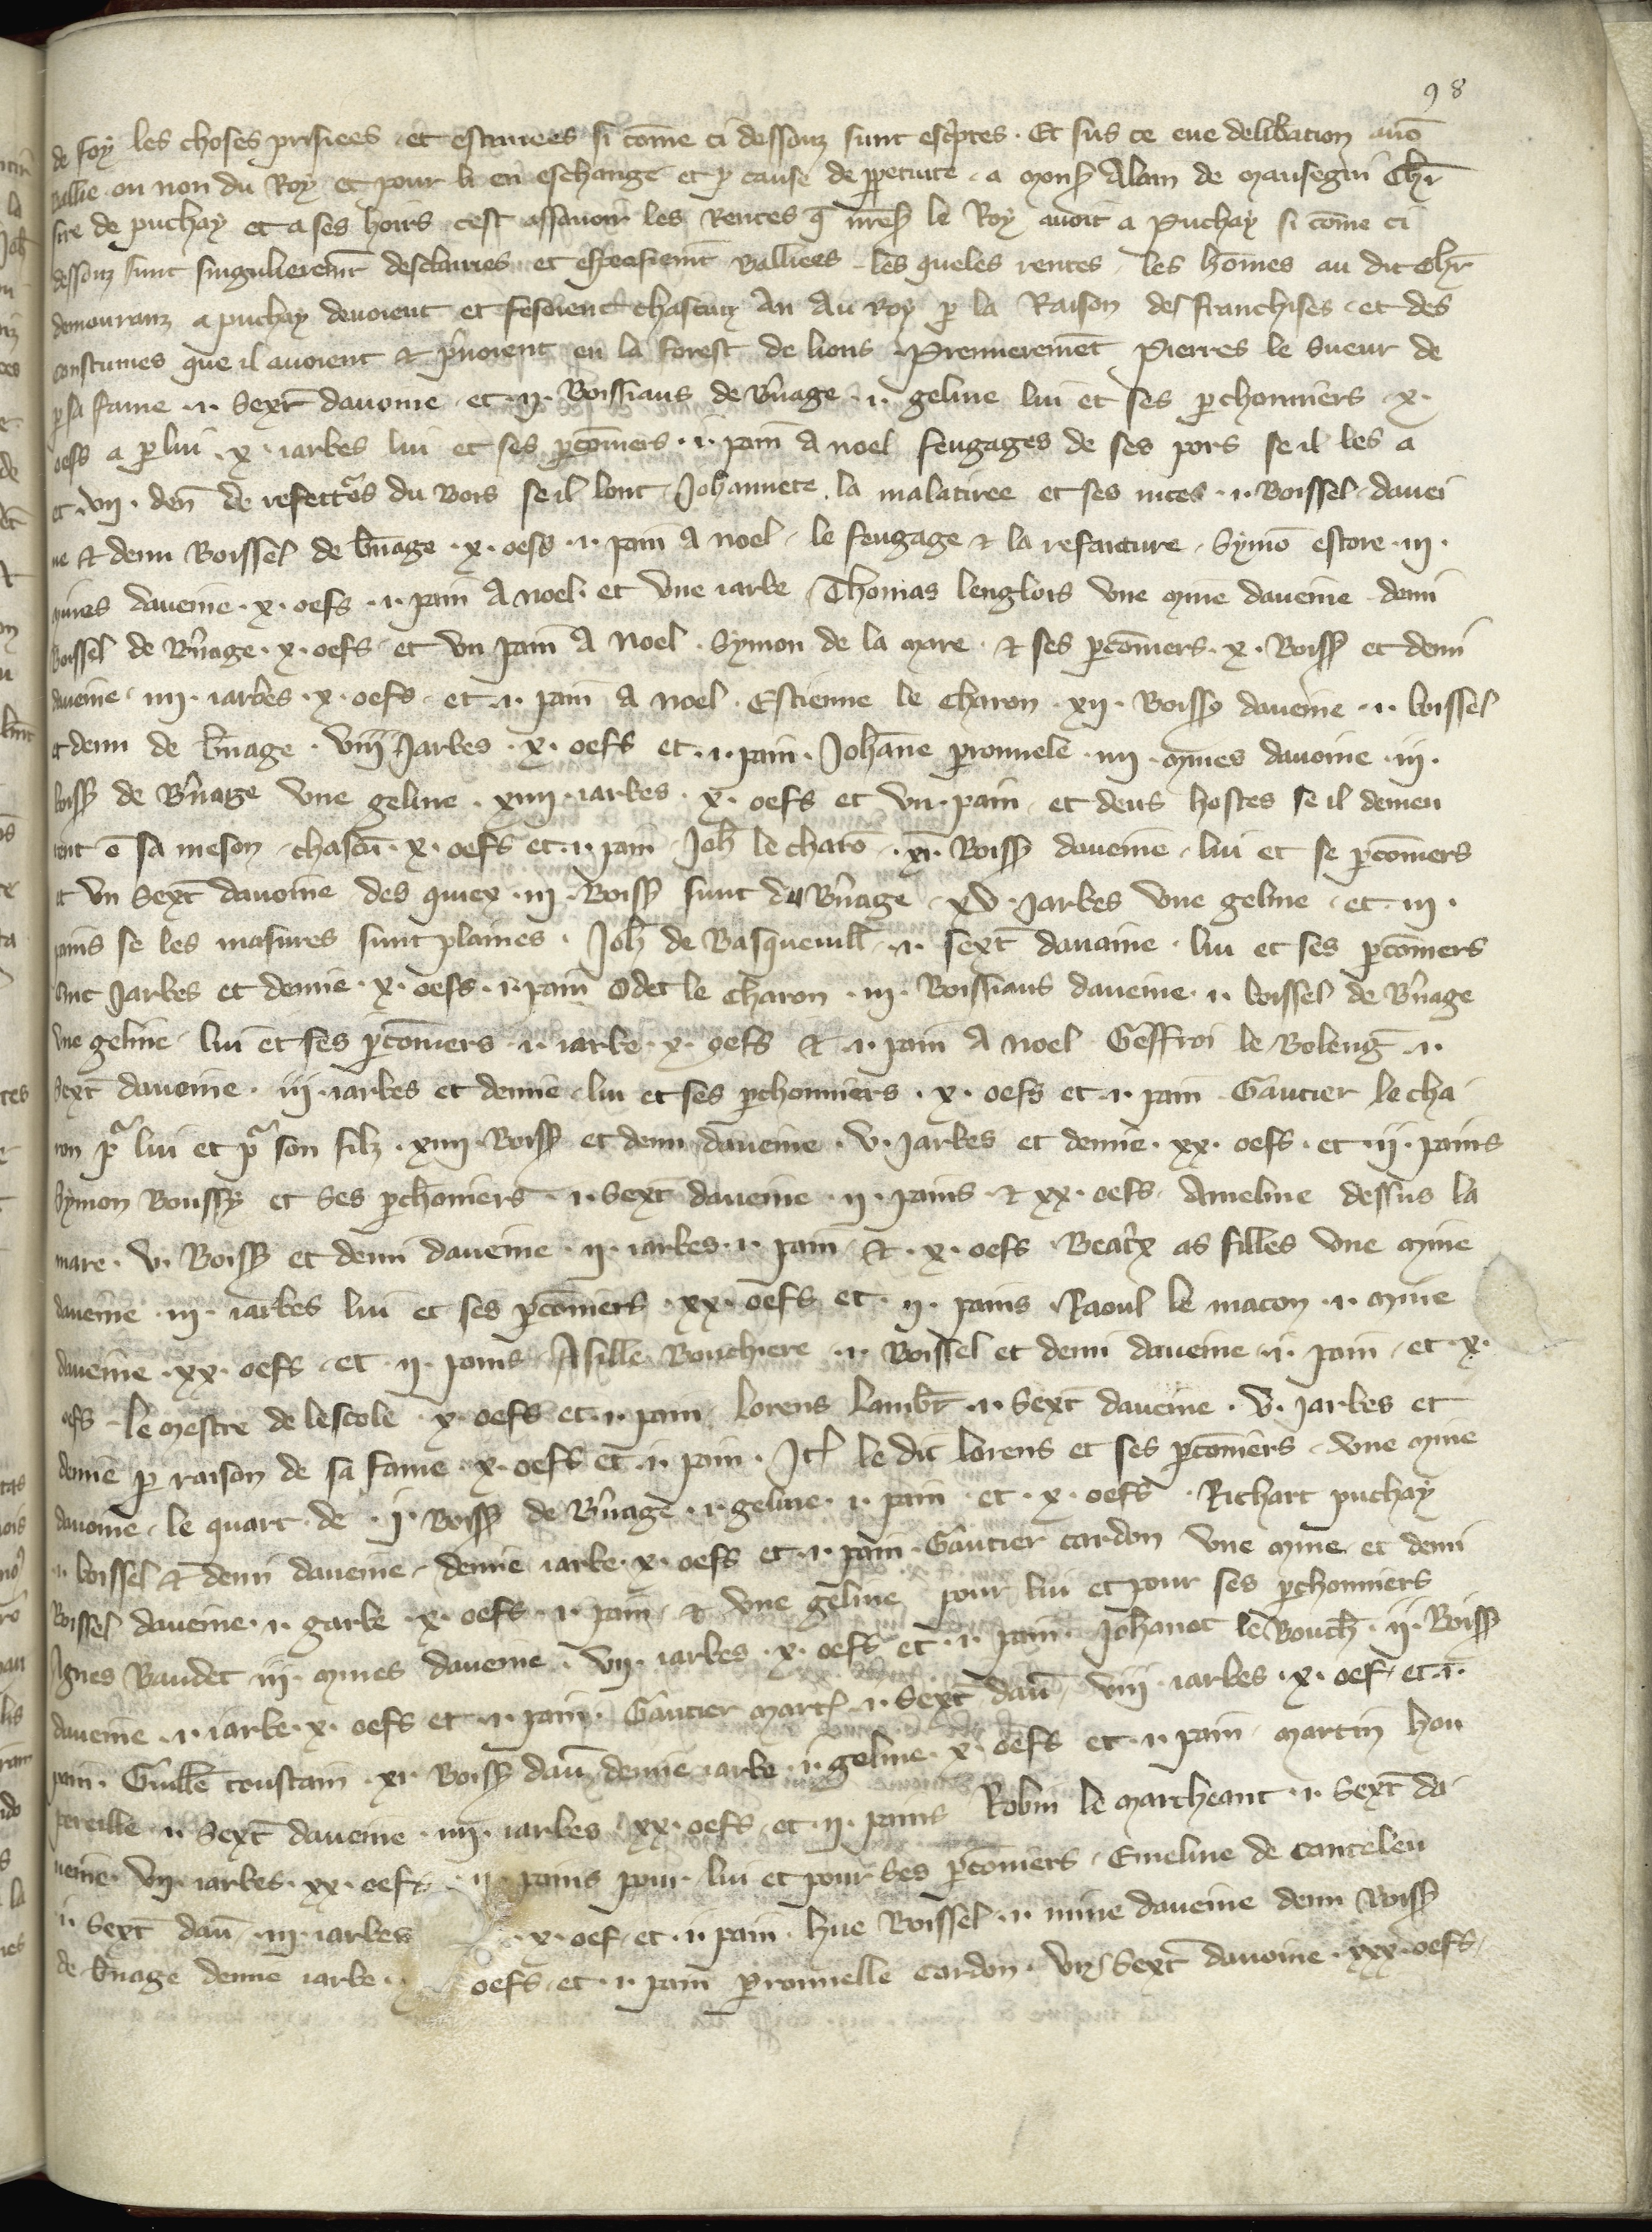 98
de foy les choses prisiees et estimees si cōme ci dessouz sunt esc̾ptes. Et sus ce eue delib̾ation auōs
baillie ou non du Roy et pour li en eschange et p̱ cause de p̱petuite. a Mons̾ Alam de Mausegni Ch̾r
sire de puchay et a ses hoirs cest assauoir les Rentes q̄ nr̄es̾ le Roy auoit a Puchay si cōme ci
dessouz sunt singulierem̄t desclairies et especifiem̄t bailliees les queles rentes les hōmes au dit Ch̾r
demouranz a puchay deuoient et fesoient chascun An Au Roy p̱ la Raison des franchises et des
constumes que il auoient et p̾noient en la forest de lions. Premierement Pierres le Sueur de
p̱ sa fame .i. Sext̾ dauoine et .ii. Boissiaus de B̾nage .i. geline lui et ses p̱chonniers .x.
oefs a p̱ lui .x. iarbes lui et ses p̱cōniers .i. pain A noel feugages de ses pors se il les a
et .vii. den̄ de refect̾os du Bois se il lont. Johannete la malatiree et ses nices .i. Boissel dauei
ne et demi Boissel de b̾nage .x. oefs .i. pain A noel. le feugage et la refaiture. Symō estore .iii.
mines daueine .x. oefs .i. pain A noel. et vne iarbe. Thomas lenglois vne mine daueine demi
Boissel de B̾nage .x. oefs et vn pain A Noel. Symon de la mare et ses p̱cōniers .x. Boiss̾ et demi
daueine .iiii. iarbes .x. oefs et .i. pain A noel. Estienne le charon .xii. Boiss̾ daueine .i. boissel
et demi de b̾nage. viii Jarbes .x. oefs et .i. pain. Johāne p̱ronnele .iiii. mines dauoine .iii.
boiss̾ de B̾nage vne geline .xiiii. iarbes .x. oefs et vn. pain et deus hostes se il demeu
rent ē sa meson chascū .x. oefs et .i. pain. Joh̄ le charō .xi. Boiss̾ daueine lui et se p̱cōniers
et vn Sext̾ dauoine des quiex .iii. Boiss̾ sunt de B̾nage .xv. Jarbes vne geline et .iii.
pains se les masures sunt plaines. Joh̄ de Basqueuill̄ .i. sext̾ dauaine. lui et ses p̱cōniers
Jarbes et demie .x. oefs .i. pain Odet le charon .iii. Boissiaus daueine .i. boissel de B̾nage
vne geline lui et ses p̱cōniers .i. iarbe .x. oefs et .i. pain A noel. Geffroi le Boleng̾ .i.
Sext̾ daueine. iii. iarbes et demie lui et ses p̱chonniers .x. oefs et .i. pain. Gautier le cha
ron pͣ lui et pͣ son filz .xiiii. Boiss̾ et demi daueine .v. Jarbes et demie .xx. oefs et .ii. pains
Symon Boussy et Ses p̱choniers .i. Sext̾ daueine .ii. pains et xx. oefs. Ameline dessus la
mare .v. Boiss̾ et demi daueine .ii. iarbes .i. pain et .x. oefs. Beat̾x as filles vne mine
daueine .iii. iarbes lui et ses p̱cōniers .xx. oefs et .ii. pains. Raoul le macon .i. mine
daueine .xx. oefs et .ii. pains. Asille Bouchiere .i. Boissel et demi daueine .i. pain et .x.
oefs. le mestre de lescole .x. oefs et .i. pain. Lorens Lamb̾t .i. Sext̾ daueine .v. Jarbes et
demie p̱ raison de sa fame .x. oefs et .i. pain. Jt̾ le dit lorens et ses p̱cōniers vne mine
dauoine le quart de .i. Boiss̾ de B̾nage .i. geline .i. pain et .x. oefs. Richart puchay
.i. boissel et demi daueine. demie iarbe .x. oefs et .i. pain. Gautier cardon vne mine et demi
Boissel daueine .i. garbe .x. oefs .i. pain et vne geline pour lui et pour ses p̱chonniers
Agnes Baudet iii. mines daueine .vii. iarbes .x. oefs et .i. pain. Johanot le Bouch̾ .ii. Boiss̾
daueine .i. iarbe .x. oefs et .i. pain. Gautier mart̾ .i. Sext̾ dau̾ viii. iarbes .x. oef et .i.
pain. Guill̄e coustain .xi. Boiss̾ dau̾ demie iarbe .i. geline .x. oefs et .i. pain. martin hou
pereille .i. Sext̾ daueine .iiii. iarbes xx. oefs et .ii. pains. Robin le marcheant .i. Sext̾ da
ueine. vii. iarbes .xx. oefs .ii. pains pour lui et pour Ses p̱cōniers. Emeline de canteleu
.i. Sext̾ dau̾ .iii. iarbes .x. oef et .i. pain. hue Boissel .i. mine daueine demi Boiss̾
de b̾nage demie iarbe oefs et .i. pain. p̱ronnelle cardon. vn Sext̾ dauoine .xxx. oefs